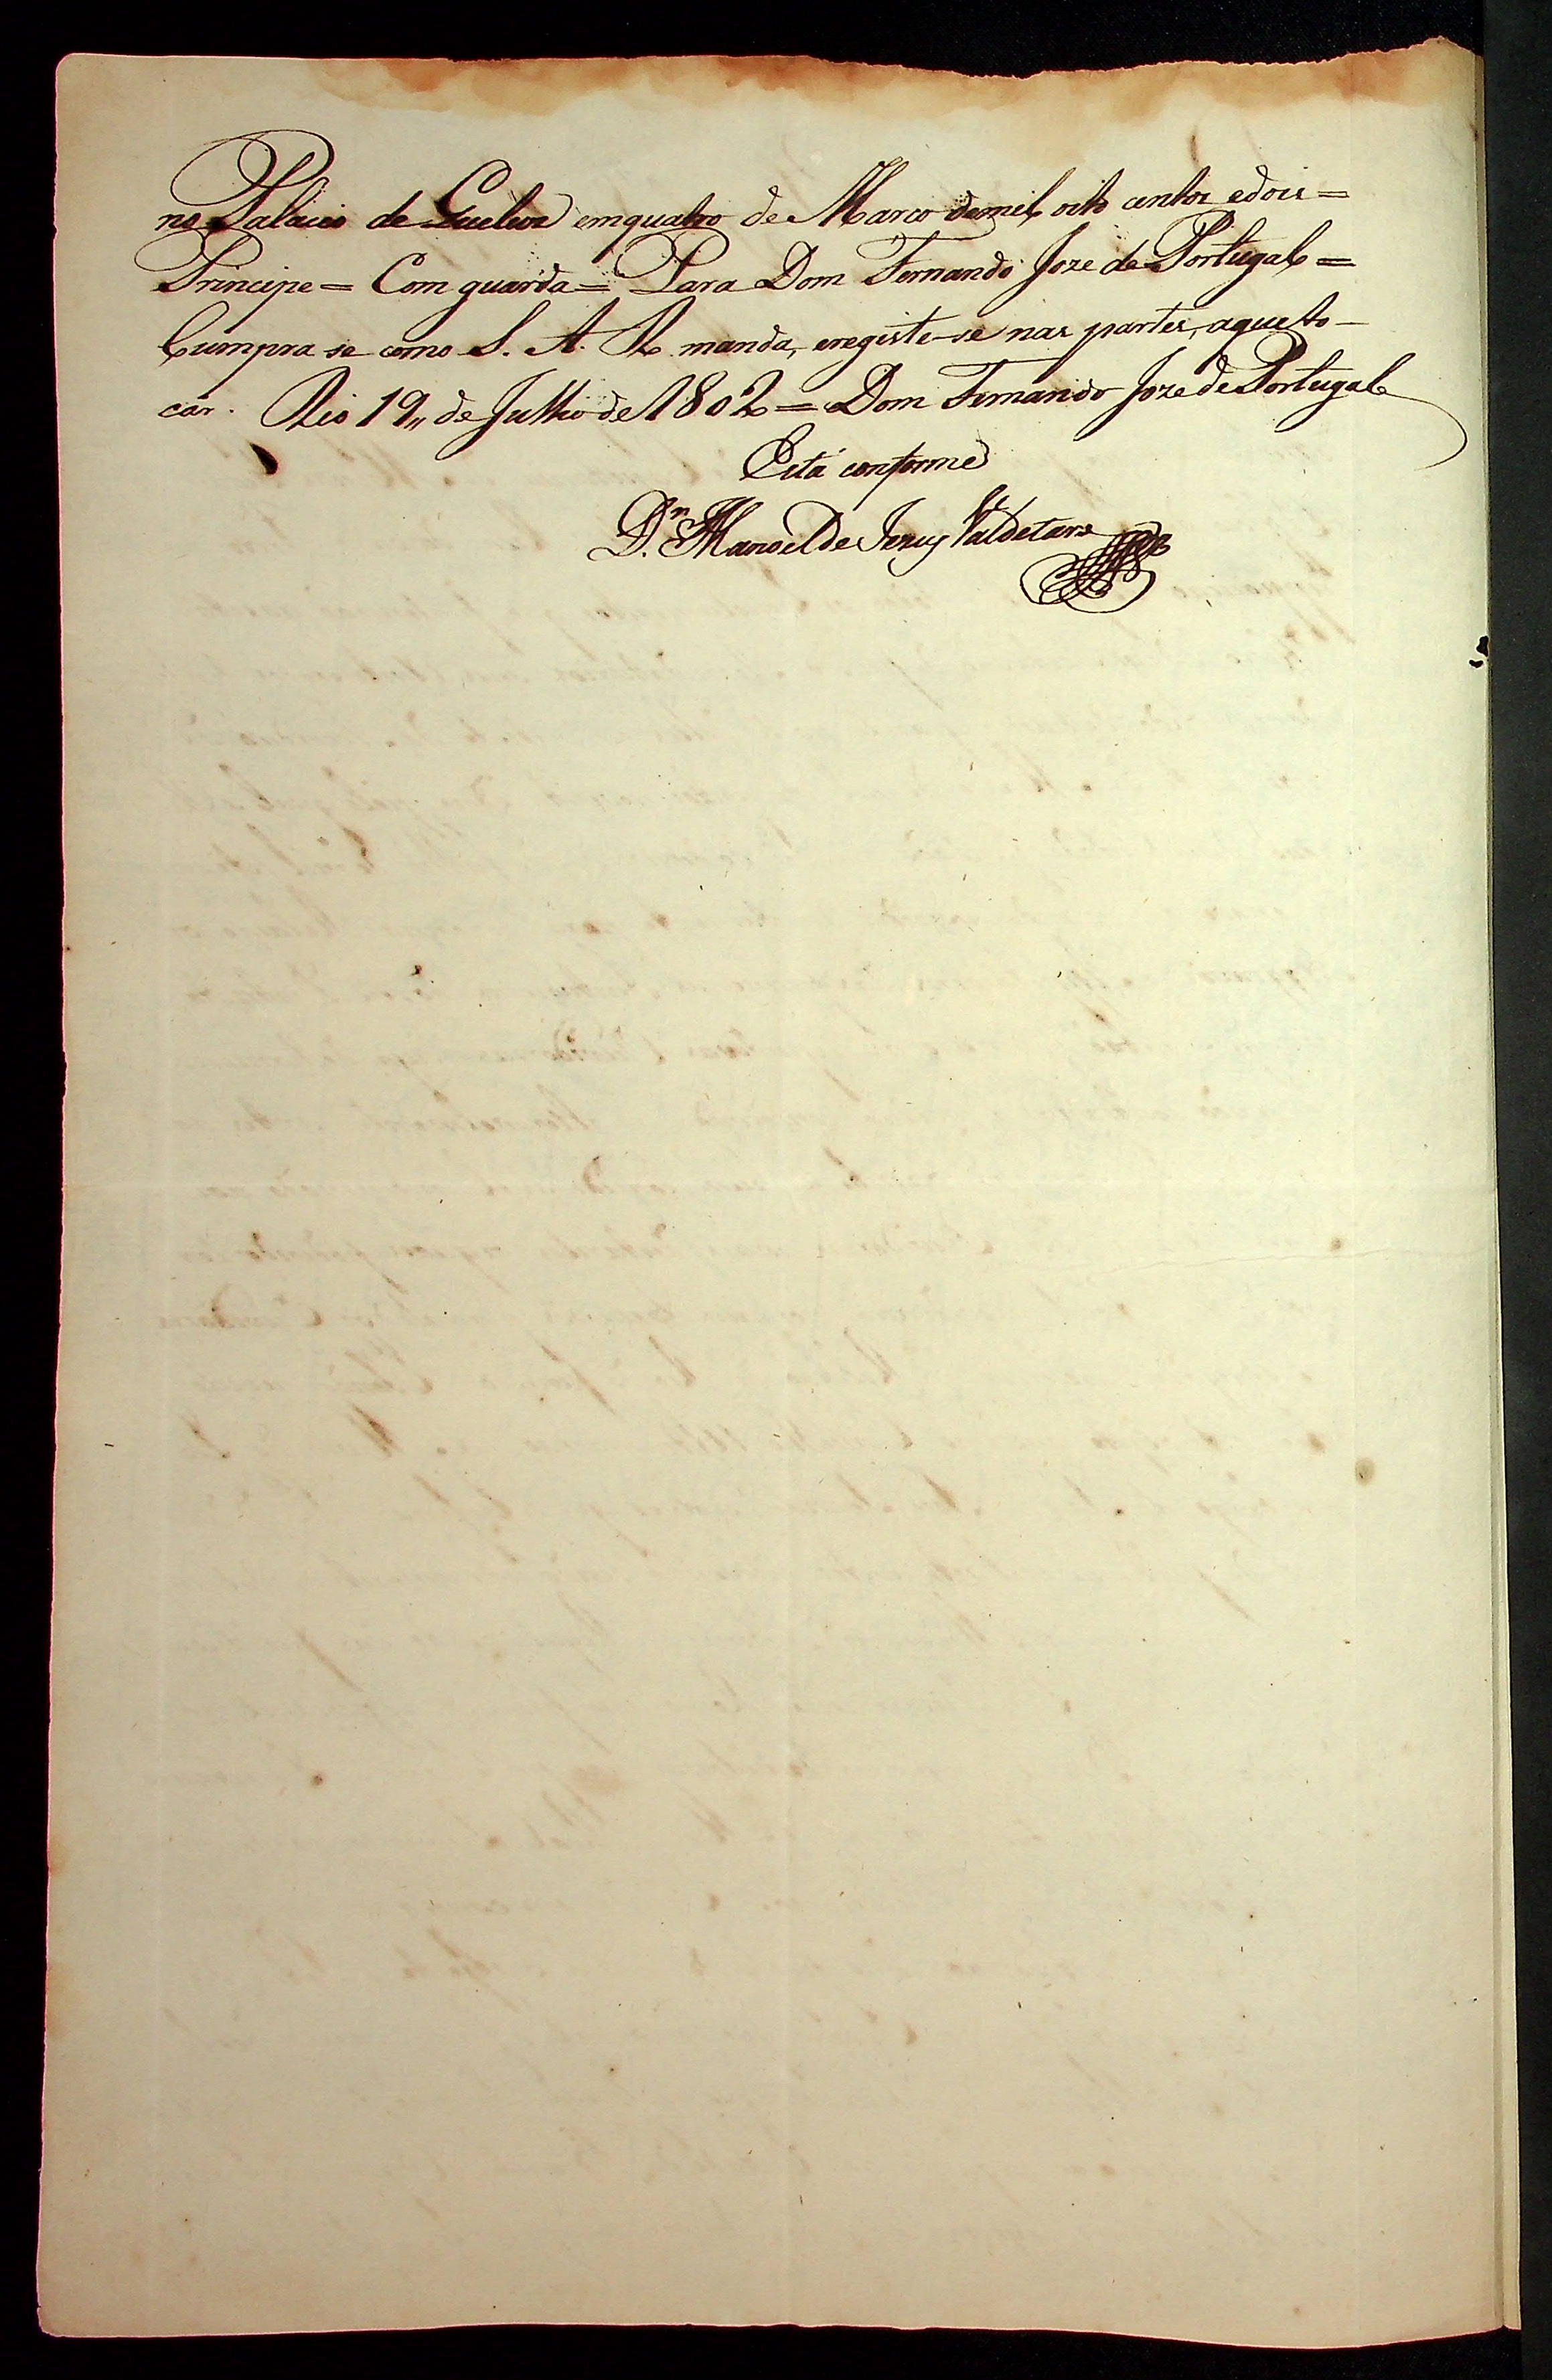 no Palacio de Queluz em quatro de Março de mil oito centos e dois =
Principe = Com guarda = Para Dom Fernando Joze de Portugal =
Cumpra se como S. A. R. manda, e registe-se nas partes, aque to-
car. Rio 19 de Julho de 1802 = Dom Fernando Joze de Portugal
Está conforme
D.ⁿ Manoel de Jezus Valdetaro